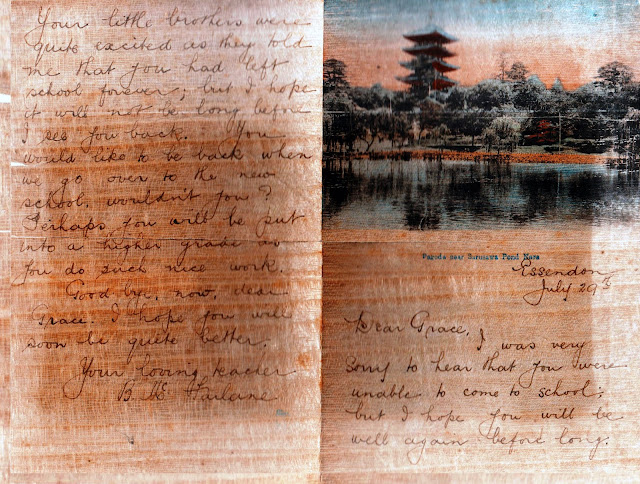 Pagoda near Sarusawa Pond Nara
Essendon
July 29th
Dear Grace,
I was very
sorry to hear that you were
unable to come to school;
but I hope you will be
well again before long.
Your little brothers were
quite excited as they told
me that you had left
school forever; but I hope
it will not be long before
I see you back. You
would like to be back when
we go over to the new
school, wouldn't you?
Perhaps you will be put
into a higher grade as
you do such nice work.
Good bye, now, dear
Grace. I hope you will
soon be quite better.
Your loving teacher
B. Mc Farlane